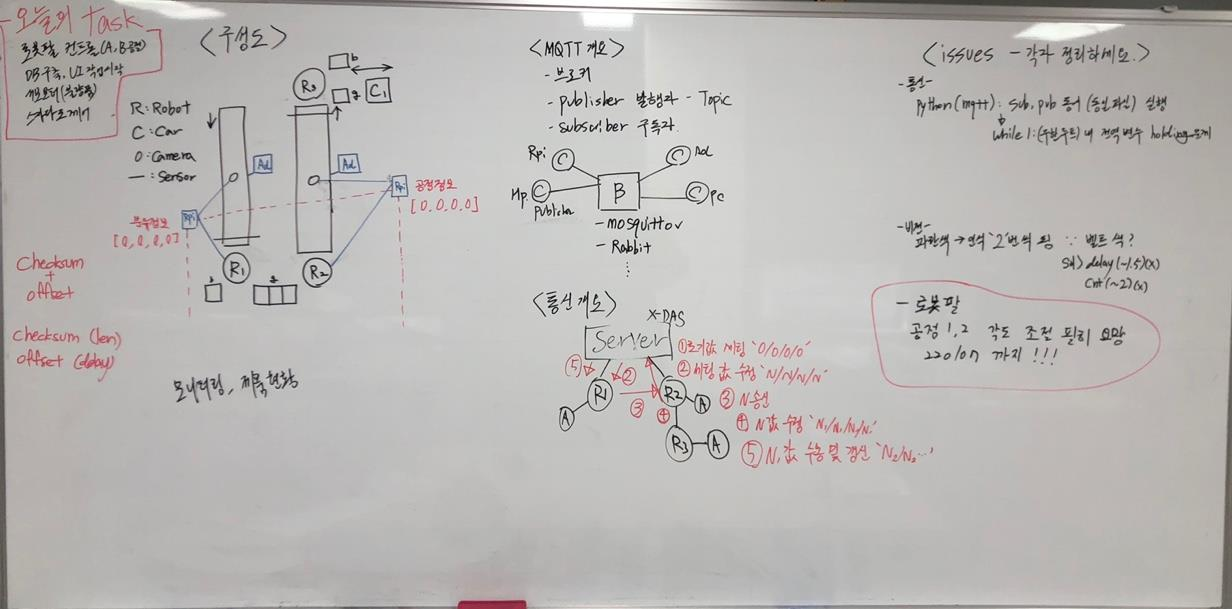 - 오늘의 task
로봇팔 컨트롤 (A, B공정)
DB구축, UI 작성시작
서보모터(불량품)
<구성도>
R: Robot
C: Car
O: Camera
— : Sersor
R3
b
a
C1
Ad
Ad
Rpi
공정정보
[0,0,0,0]
Rpi
분류정보
[0,0,0,0]
R1
R2
Checksum
+
offset
checksum (len)
offset (delay)
모니터링, 제품현황
<MQTT 개요>
- 브로커
- publisher 발행자 - Topic
- subscriber 구독자
Rpi
C
C
Ad
Mp.
C
B
C
PC
Publisher
- mosquittov
- Rabbit
⋮
<통신개요>
X-DAS
Server
R1
R2
R3
A
A
A
⑤
②
③
④
① 초기값 세팅 `0/0/0/0`
② 세팅 값 수정 `N/N/N/N`
③ N 송신
④ N값 수정 `N1/N1/N1/N1`
⑤ N1값 수송 및 갱신 `N2/N2...`
<issues - 각자 정리하세요.>
- 통신 -
Python(mqtt): sub, pub 동시 (동일파일) 실행
while 1: (무한루프) 내 전역변수 holding 문제
- 비전 -
파란색 → 인식 `2'번씩 됨 ∵ 벨트 색?
sol) delay(~1.5)(x)
cnt(~2)(x)
- 로봇팔
공정 1,2 각도 조정 필히 요망
220107 까지 !!!